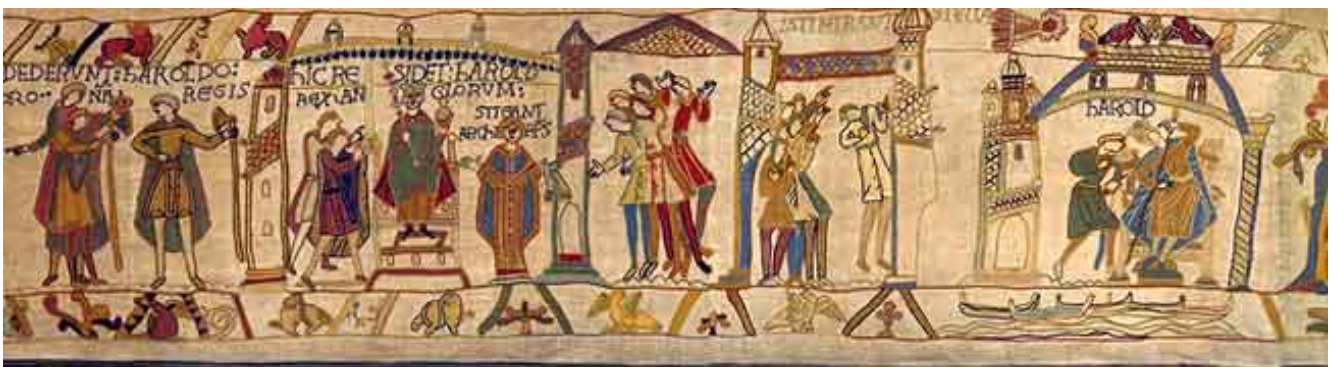 DEDERVNT:hAROLDO:
CORONA REGIS
hIC RE SIDET:hAROLD
REX:AN GLORVM:
STIGANT
ARChIEPS
ISTI MIRANT STELLA
hAROLD